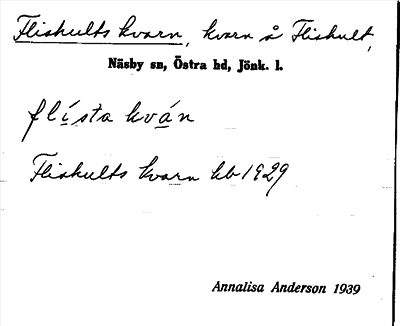 Fliskults kvarn, kvarn å Fliskult,
Näsby sn, Östra hd, Jönk. l.
flísta kván
Fliskults kvarn kb 1929
Annalisa Anderson 1939